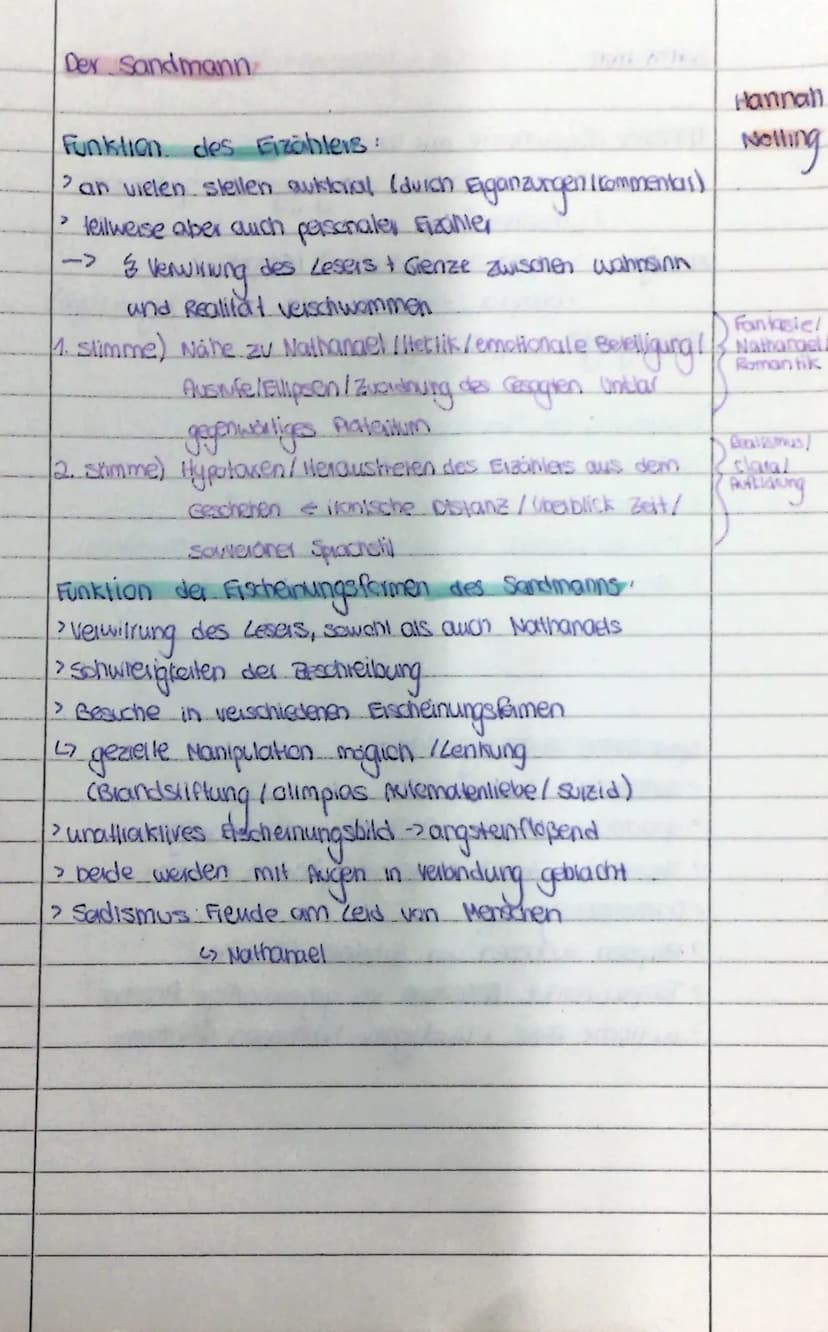 Der Sandmann
Hannah
Nölling
Funktion des Erzählers:
> an vielen stellen auktorial (durch Ergänzungen/Kommentar)
> teilweise aber auch personaler Erzähler
--> Verwirrung des Lesers + Grenze zwischen wahnsinn
und Realität verschwommen
1. Stimme) Nähe zu Nathanael / Hektik / emotionale Beteiligung /
Ausrufe/Ellipsen/Zuordnung des Gesagten unklar
gegenwärtiges Präteritum
Fantasie/
Nathanael/
Romantik
2. Stimme) Hypotaxen/Heraustreten des Erzählers aus dem
Geschehen ironische Distanz / Überblick Zeit/
souveräner Sprachstil
Realismus/
Clara/
Aufklärung
Funktion der Erscheinungsformen des Sandmanns:
> Verwirrung des Lesers, sowohl als auch Nathanaels
> Schwierigkeiten der Beschreibung
> Besuche in verschiedenen Erscheinungsformen
↳ gezielte Manipulation möglich /Lenkung
(Brandstiftung / Olimpias Automatenliebe / Suizid)
> unattraktives Erscheinungsbild -> angsteinflößend
> beide werden mit Augen in verbindung gebracht
> Sadismus: Freude am Leid von Menschen
↳ Nathanael